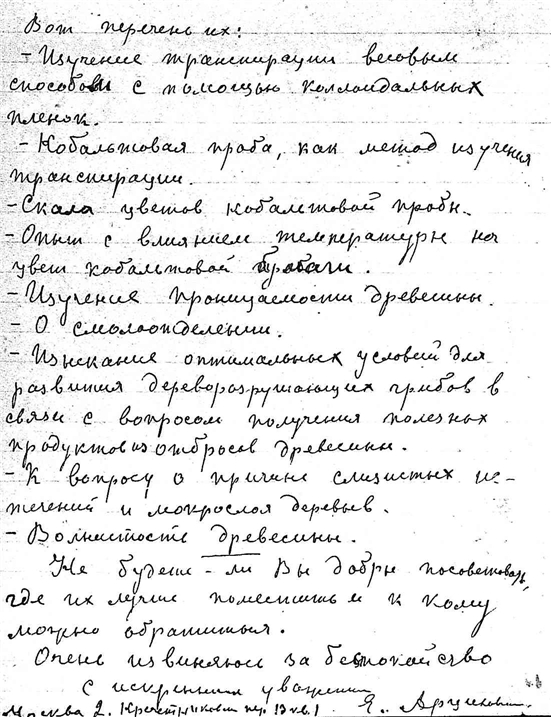 Вот перечень их:
- Изучение транспирации весовым
способом с помощью коллоидальных
пленок.
- Кобальтовая проба, как метод изучения
транспирации.
- Скала цветов кобальтовой пробы.
- Опыт с влиянием температуры на
цвет кобальтовой бумаги.
- Изучение проницаемости древесины.
- О смолоотделении.
- Изыскание оптимальных условий для
развития дереворазрушающих грибов в
связи с вопросом получения полезных
продуктов из отбросов древесины.
- К вопросу о причине слизистых ис-
течений и мокрослоя деревьев.
- Волнистость древесины.
Не будете-ли Вы добры посоветовать,
где их лучше поместить и к кому
можно обратиться.
Очень извиняюсь за беспокойство
с искренним уважением
Москва 2. пер. 13 кв. 1 Я.